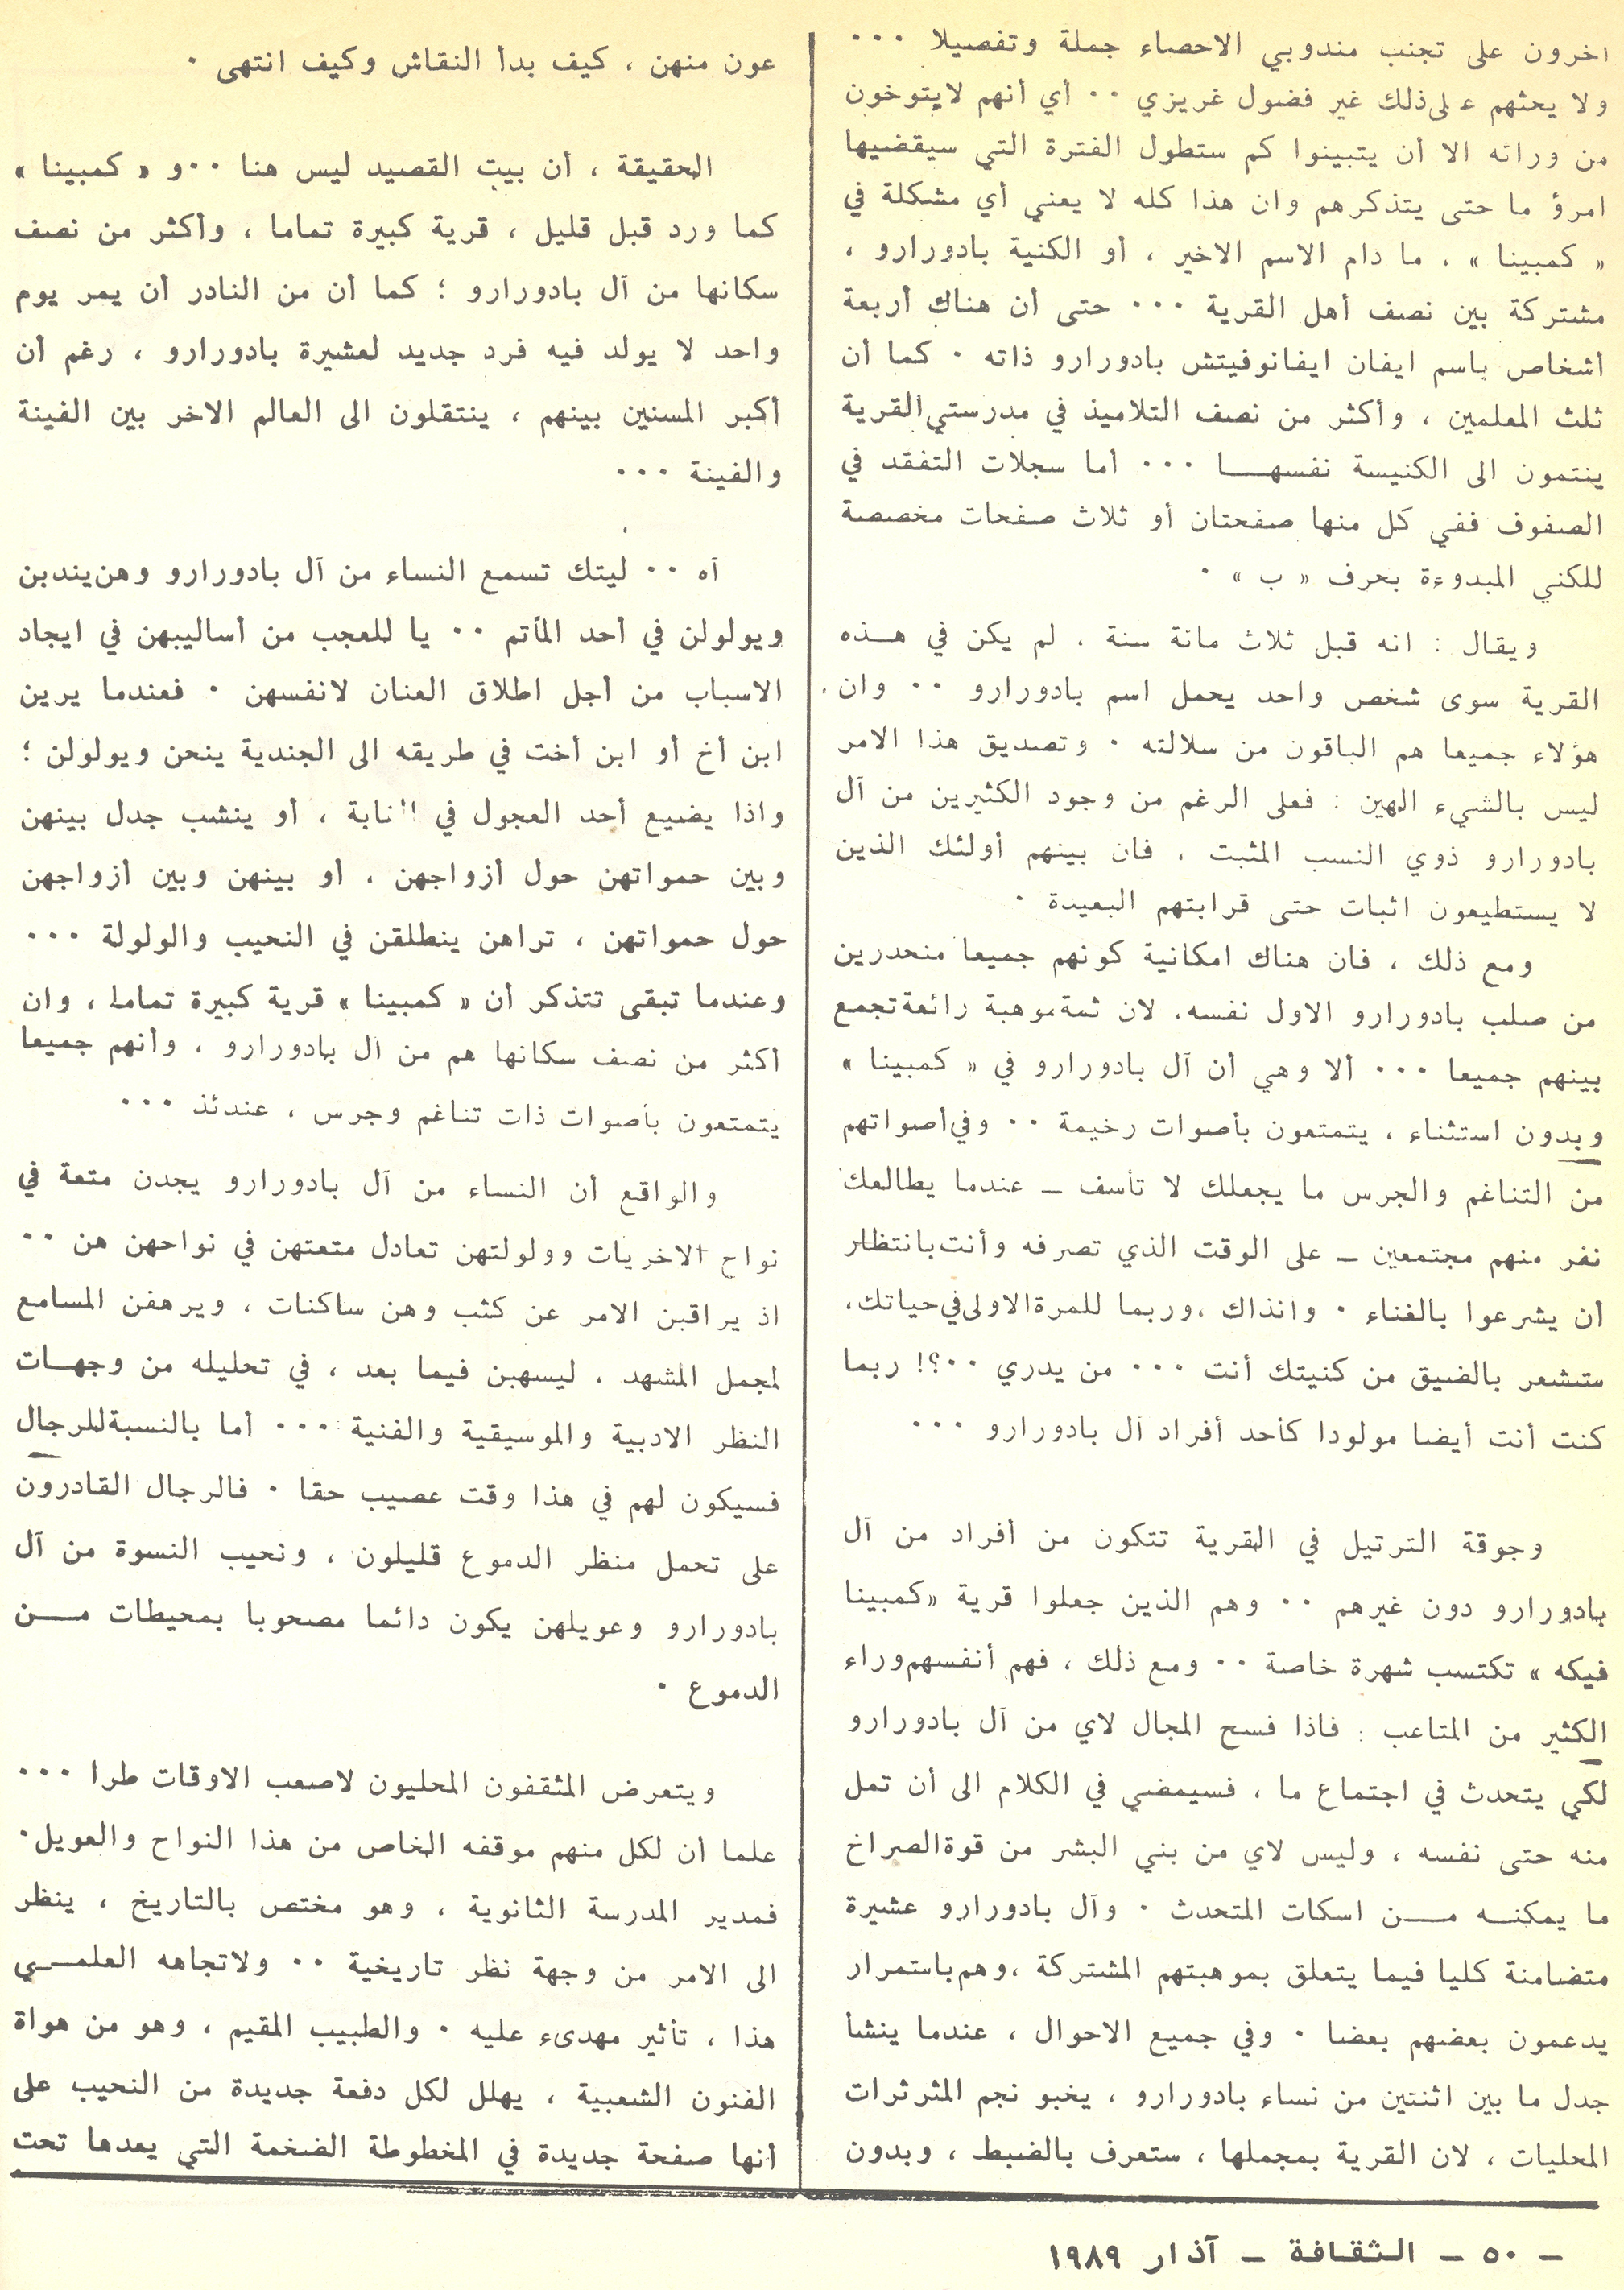 اخرون على تجنب مندوبي الاحصاء جملة وتفصيلا ٠٠٠
ولا يحثهم على ذلك غير فضول غريزي ٠٠ أي أنهم لايتوخون
من ورائه الا أن يتبينوا كم ستطول الفترة التي سيقضيها
امرؤ ما حتى يتذكرهم وان هذا كله لا يعني أي مشكلة في
« كمبينا » ، ما دام الاسم الاخير ، أو الكنية بادورارو ،
مشتركة بين نصف أهل القرية ٠٠٠ حتى أن هناك أربعة
أشخاص باسم ايفان ايفانوفيتش بادورارو ذاته ٠ كما أن
ثلث المعلمين ، وأكثر من نصف التلاميذ في مدرستي القرية
ينتمون الى الكنيسة نفسهـــا ٠٠٠ أما سجلات التفقد في
الصفوف ففي كل منها صفحتان أو ثلاث صفحات مخصصة
للكني المبدوءة بحرف « ب » ٠
ويقال : انه قبل ثلاث مائة سنة ، لم يكن في هــذه
القرية سوى شخص واحد يحمل اسم بادورارو ٠٠ وان
هؤلاء جميعا هم الباقون من سلالته ٠ وتصديق هذا الامر
ليس بالشيء الهين : فعلى الرغم من وجود الكثيرين من آل
بادورارو ذوي النسب المثبت ، فان بينهم أولئك الذين
لا يستطيعون اثبات حتى قرابتهم البعيدة ٠
ومع ذلك ، فان هناك امكانية كونهم جميعا منحدرين
من صلب بادورارو الاول نفسه، لان ثمة موهبة رائعة تجمع
بينهم جميعا ٠٠٠ ألا وهي أن آل بادورارو في « كمبينا »
وبدون استثناء ، يتمتعون بأصوات رخيمة ٠٠ وفي أصواتهم
من التناغم والجرس ما يجعلك لا تأسف ـ عندما يطالعك
نفر منهم مجتمعين ـ على الوقت الذي تصرفه وأنت بانتظار
أن يشرعوا بالغناء ٠ وانذاك ،وربما للمرة الاولى في حياتك،
ستشعر بالضيق من كنيتك أنت ٠٠٠ من يدري ٠٠؟! ربما
كنت أنت أيضا مولودا كأحد أفراد آل بادورارو ٠٠٠
وجوقة الترتيل في القرية تتكون من أفراد من آل
بادورارو دون غيرهم ٠٠ وهم الذين جعلوا قرية «كمبينا
فيكه » تكتسب شهرة خاصة ٠٠ ومع ذلك ، فهم أنفسهم وراء
الكثير من المتاعب : فاذا فسح المجال لاي من آل بادورارو
لكي يتحدث في اجتماع ما ، فسيمضي في الكلام الى أن تمل
منه حتى نفسه ، وليس لاي من بني البشر من قوة الصراخ
ما يمكنــه مــن اسكات المتحدث ٠ وآل بادورارو عشيرة
متضامنة كليا فيما يتعلق بموهبتهم المشتركة ،وهم باستمرار
يدعمون بعضهم بعضا ٠ وفي جميع الاحوال ، عندما ينشأ
جدل ما بين اثنتين من نساء بادورارو ، يخبو نجم المثرثرات
المحليات ، لان القرية بمجملها ، ستعرف بالضبط ، وبدون
عون منهن ، كيف بدأ النقاش وكيف انتهى ٠
الحقيقة ، أن بيت القصيد ليس هنا ٠٠و « كمبينا »
كما ورد قبل قليل ، قرية كبيرة تماما ، وأكثر من نصف
سكانها من آل بادورارو ؛ كما أن من النادر أن يمر يوم
واحد لا يولد فيه فرد جديد لعشيرة بادورارو ، رغم أن
أكبر المسنين بينهم ، ينتقلون الى العالم الاخر بين الفينة
والفينة ٠٠٠
آه ٠٠ ليتك تسمع النساء من آل بادورارو وهن يندبن
ويولولن في أحد المآتم ٠٠ يا للعجب من أساليبهن في ايجاد
الاسباب من أجل اطلاق العنان لانفسهن ٠ فعندما يرين
ابن أخ أو ابن أخت في طريقه الى الجندية ينحن ويولولن ؛
واذا يضيع أحد العجول في ، أو ينشب جدل بينهن
وبين حمواتهن حول أزواجهن ، أو بينهن وبين أزواجهن
حول حمواتهن ، تراهن ينطلقن في النحيب والولولة ٠٠٠
وعندما تبقى تتذكر أن « كمبينا » قرية كبيرة تماما ، وان
أكثر من نصف سكانها هم من آل بادورارو ، وأنهم جميعا
يتمتعون بأصوات ذات تناغم وجرس ، عندئذ ٠٠٠
والواقع أن النساء من آل بادورارو يجدن متعة في
نواح الاخريات وولولتهن تعادل متعتهن في نواحهن هن ٠٠
اذ يراقبن الامر عن كثب وهن ساكنات ، ويرهفن المسامع
لمجمل المشهد ، ليسهبن فيما بعد ، في تحليله من وجهــات
النظر الادبية والموسيقية والفنية ٠٠٠ أما بالنسبة للرجال
فسيكون لهم في هذا وقت عصيب حقا ٠ فالرجال القادرون
على تحمل منظر الدموع قليلون ، ونحيب النسوة من آل
بادورارو وعويلهن يكون دائما مصحوبا بمحيطات مــن
الدموع ٠
ويتعرض المثقفون المحليون لاصعب الاوقات طرا ٠٠٠
علما أن لكل منهم موقفه الخاص من هذا النواح والعويل٠
فمدير المدرسة الثانوية ، وهو مختص بالتاريخ ، ينظر
الى الامر من وجهة نظر تاريخية ٠٠ ولاتجاهه العلمــي
هذا ، تأثير مهدىء عليه ٠ والطبيب المقيم ، وهو من هواة
الفنون الشعبية ، يهلل لكل دفعة جديدة من النحيب على
أنها صفحة جديدة في المخطوطة الضخمة التي يعدها تحت
ـ ٥٠ ـ الثقافة ـ آذار ١٩٨٩